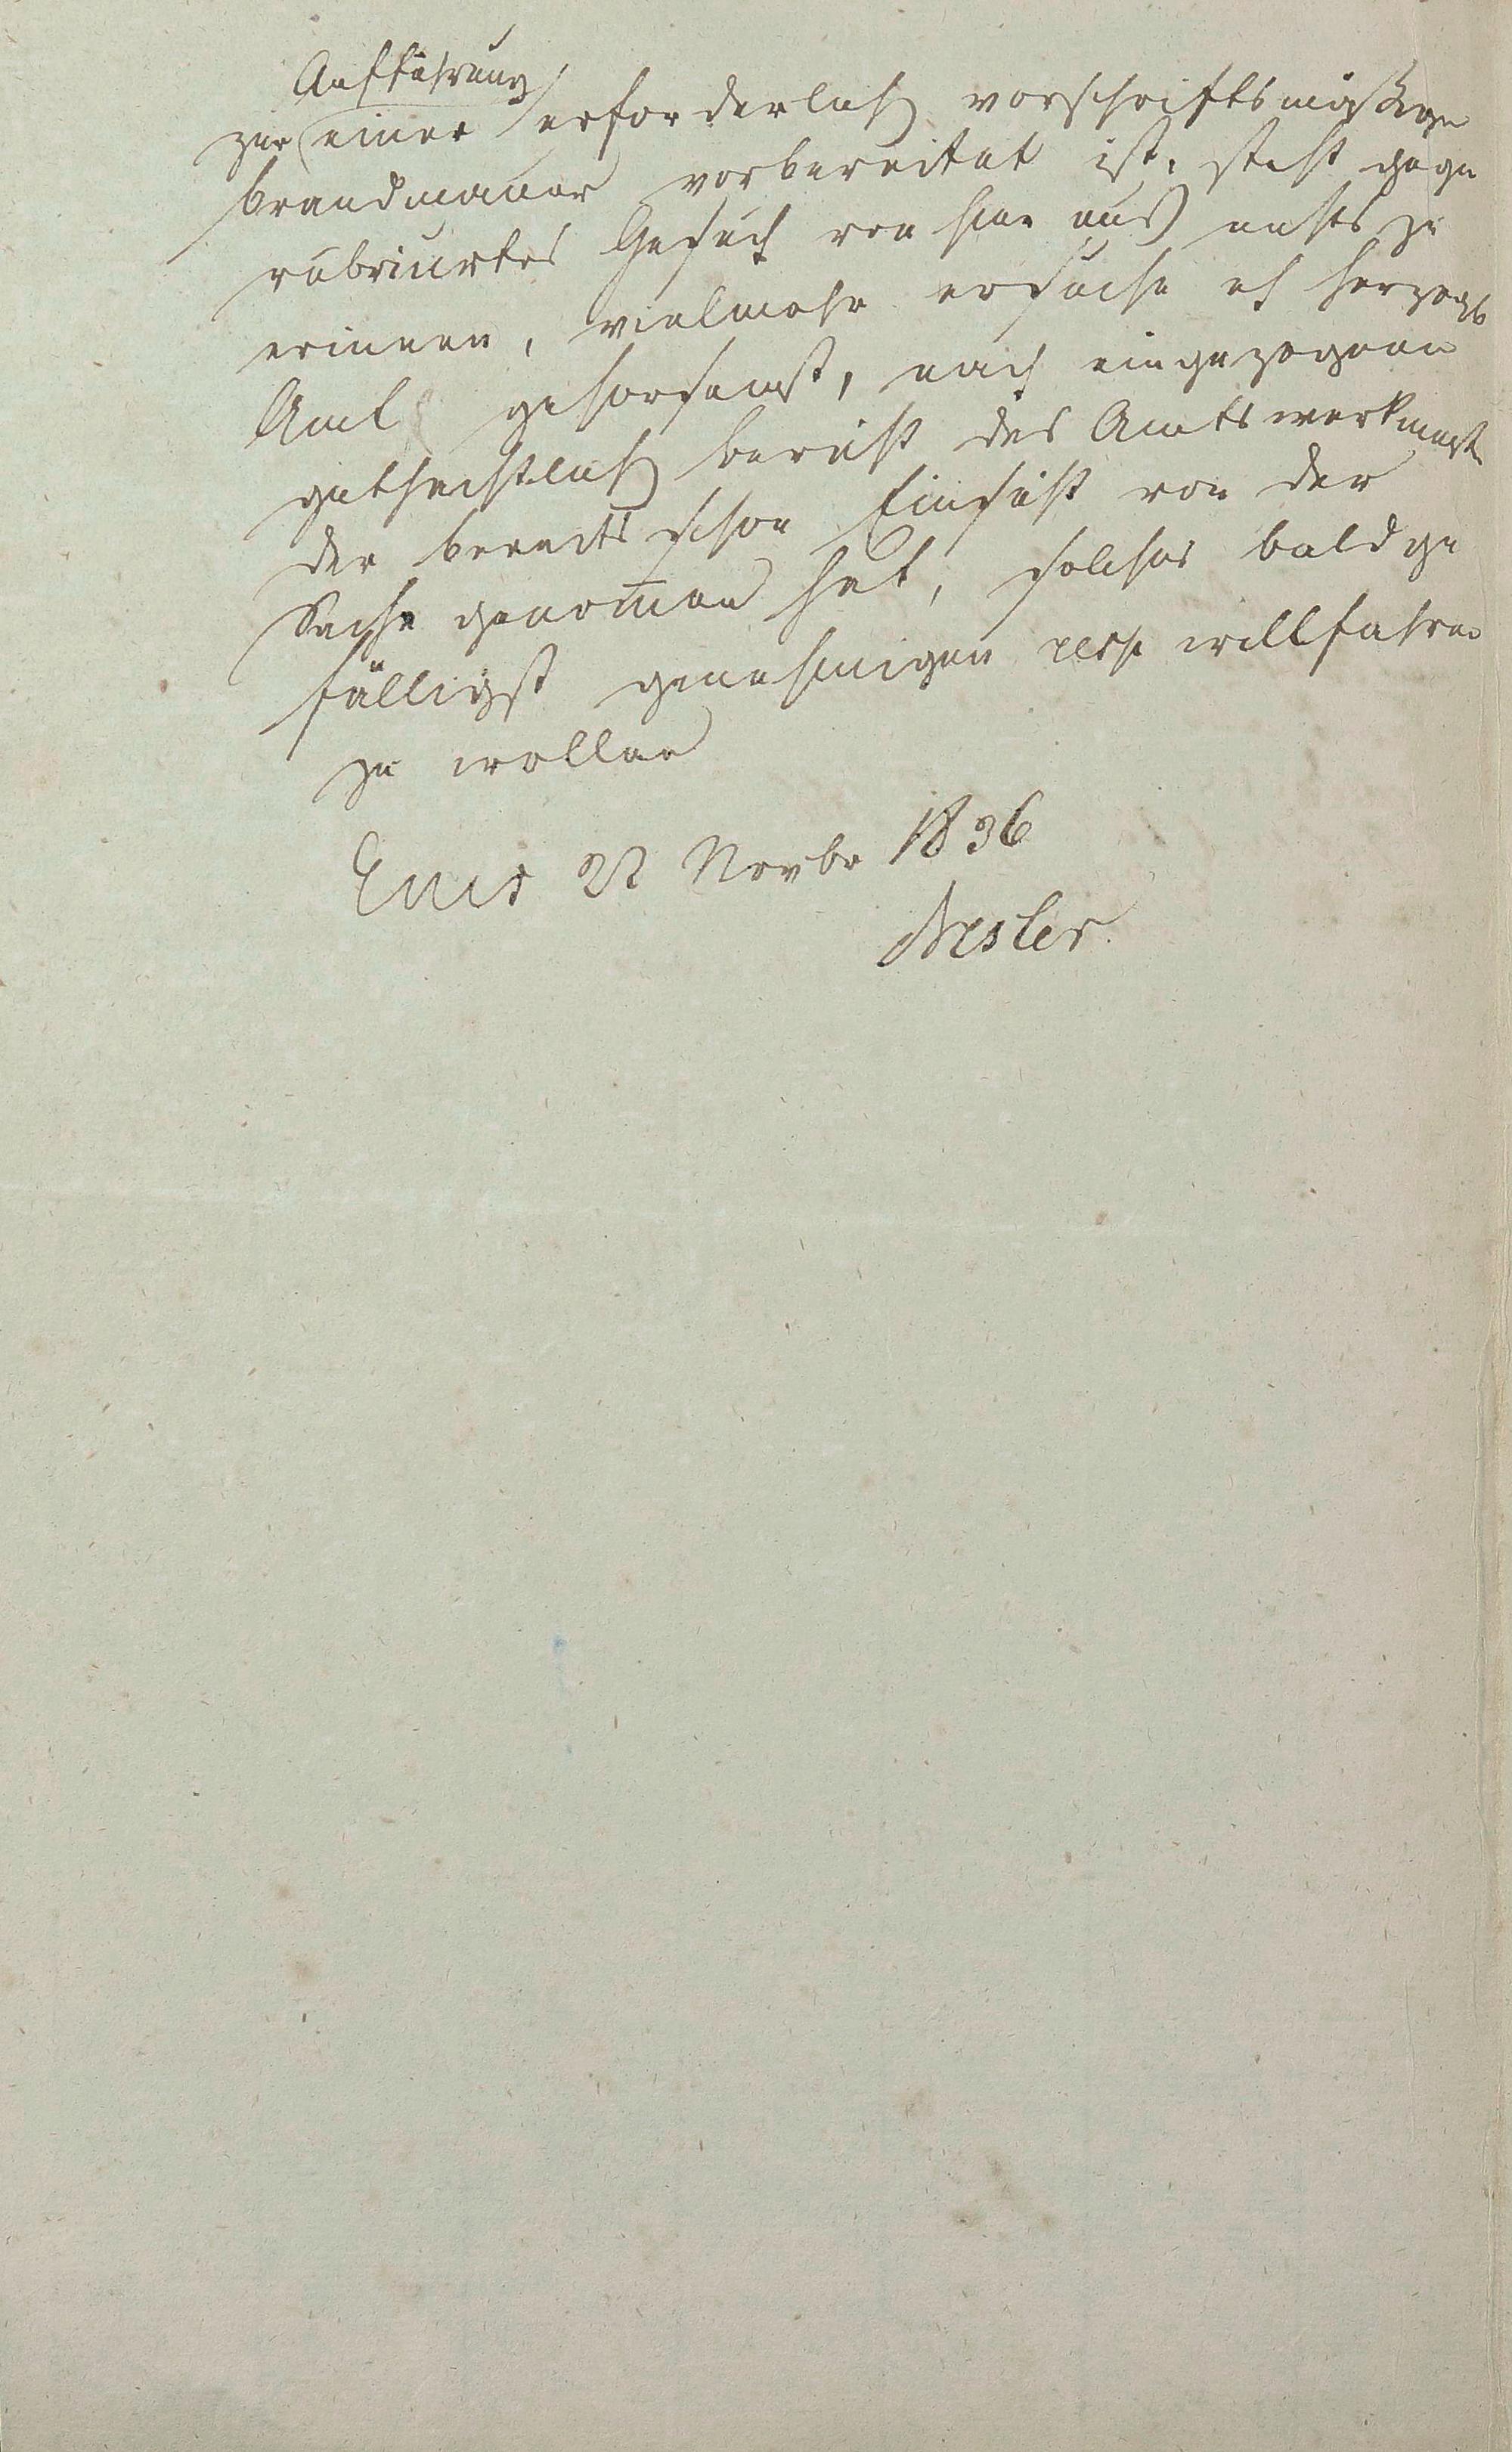 Aufführung
zur einer erforderlich vorschriftsmäßigen
brandmauer vorbereitet ist, steht gegen
rubricirtes Gesuch von hier aus nichts zu
erinnern, vielmehr ersuche ich Herzogl
Amt gehorsamst, nach eingezogenem
gutachtlich bericht des Amtswerkmeist
der bereits schon Einsicht von der
Sache genom̅en hat, solches baldge
fälligst genehmigen resp willfahren
zu wollen
Ems 22 Novbr 1836
Nesler